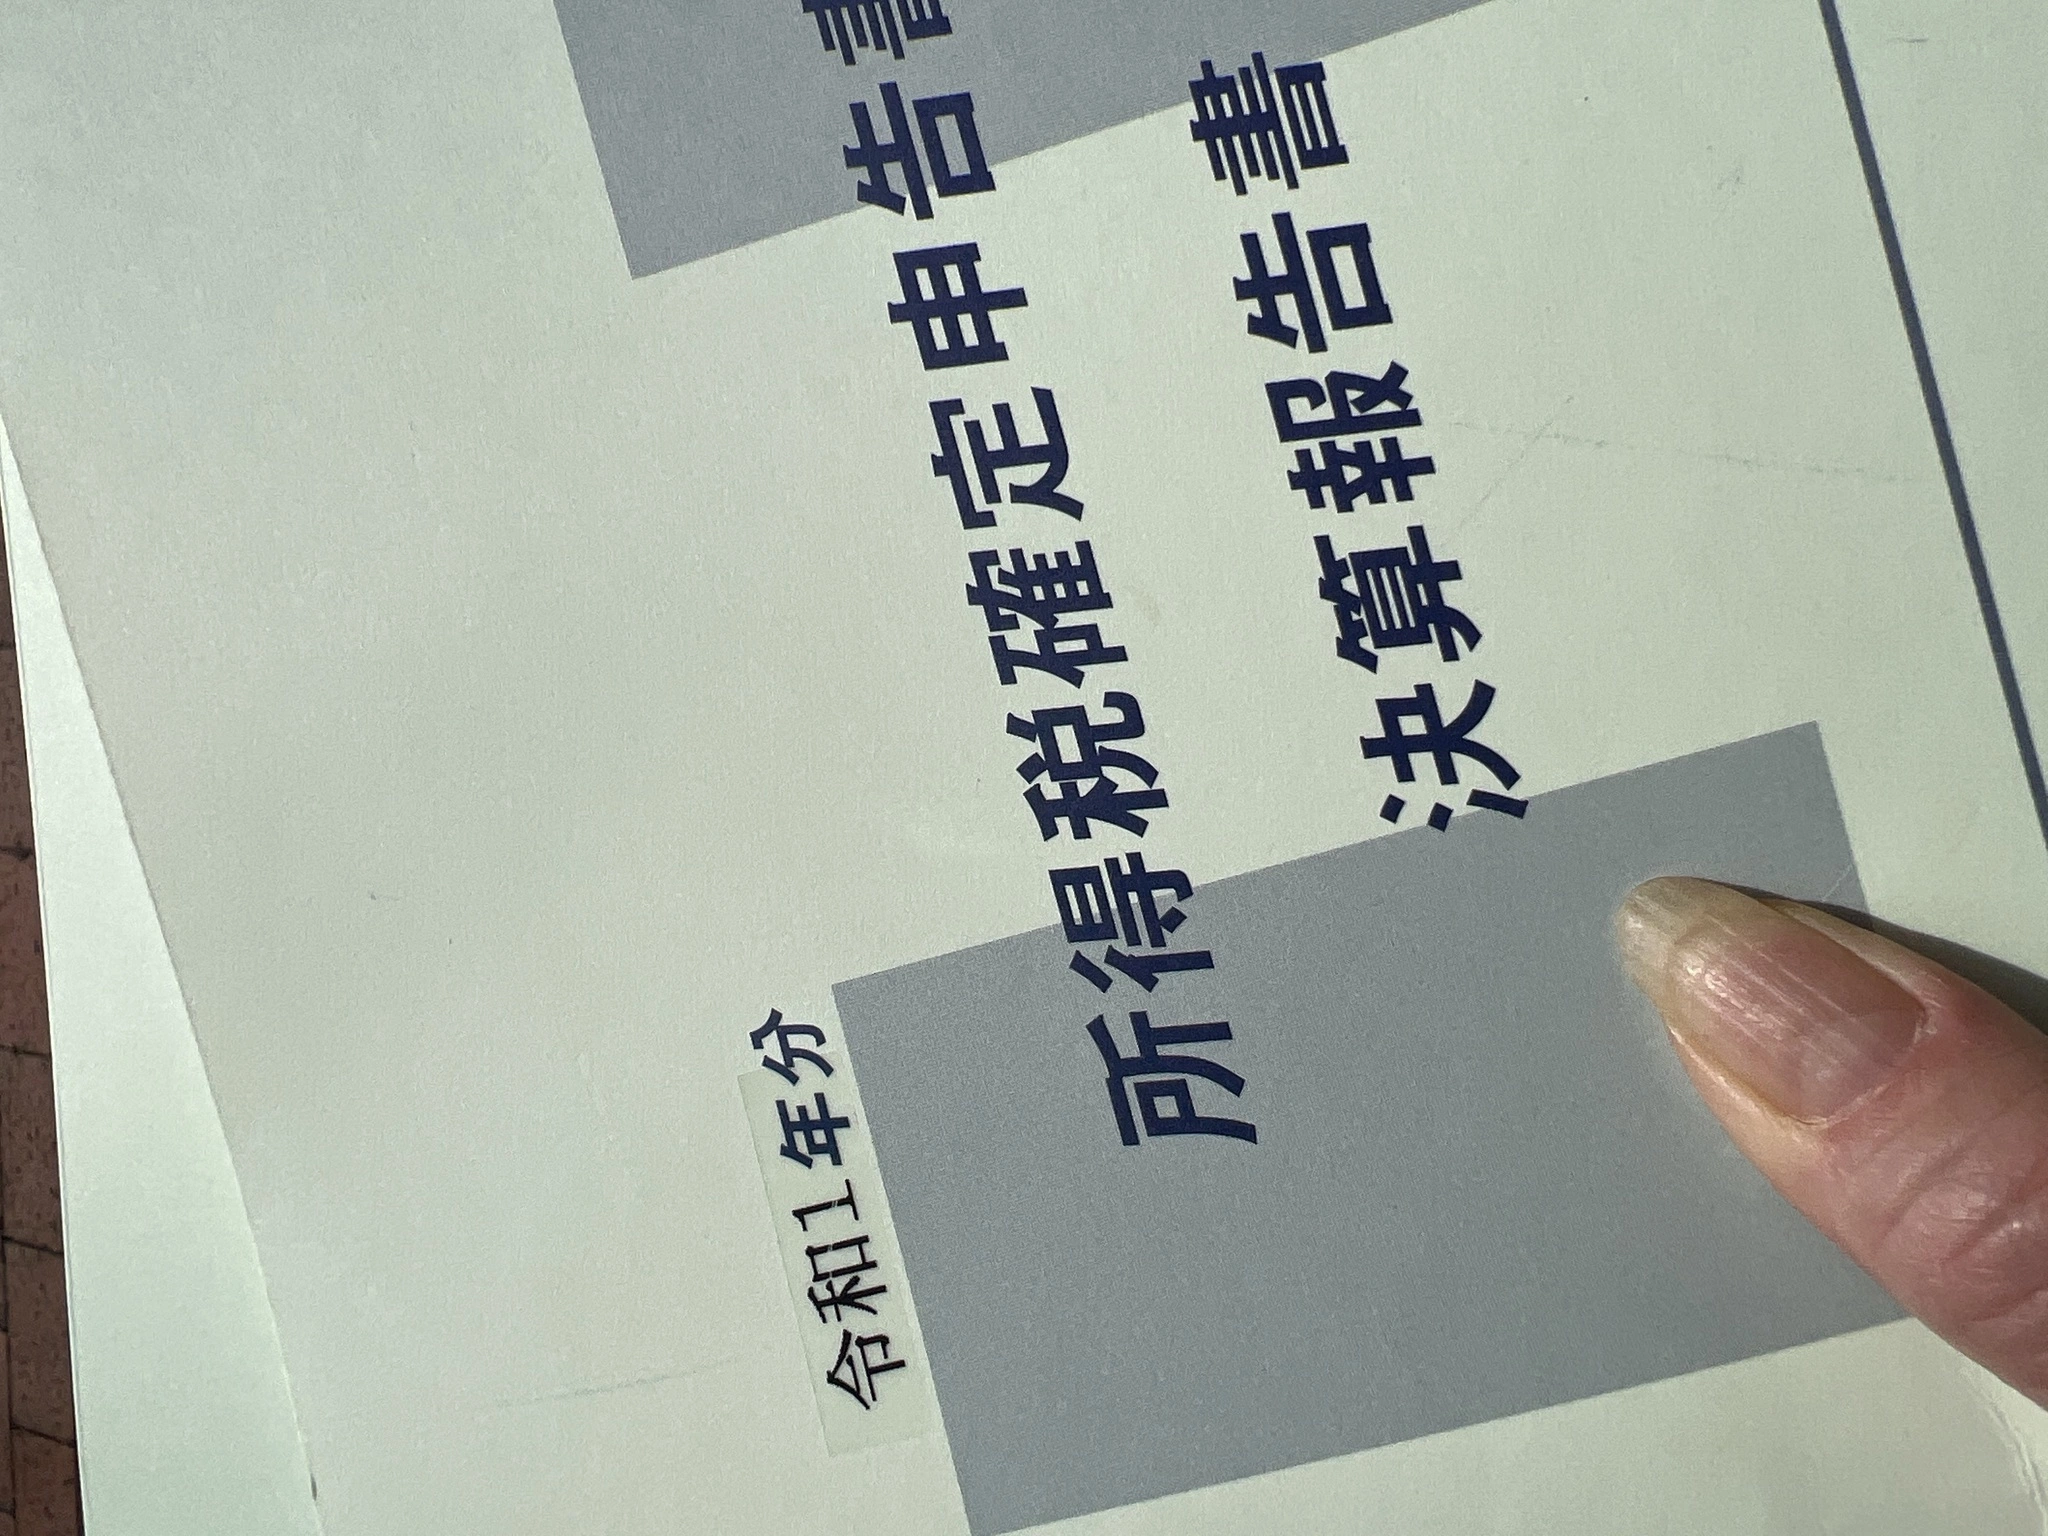 令和1年分
所得税確定申告書
決算報告書